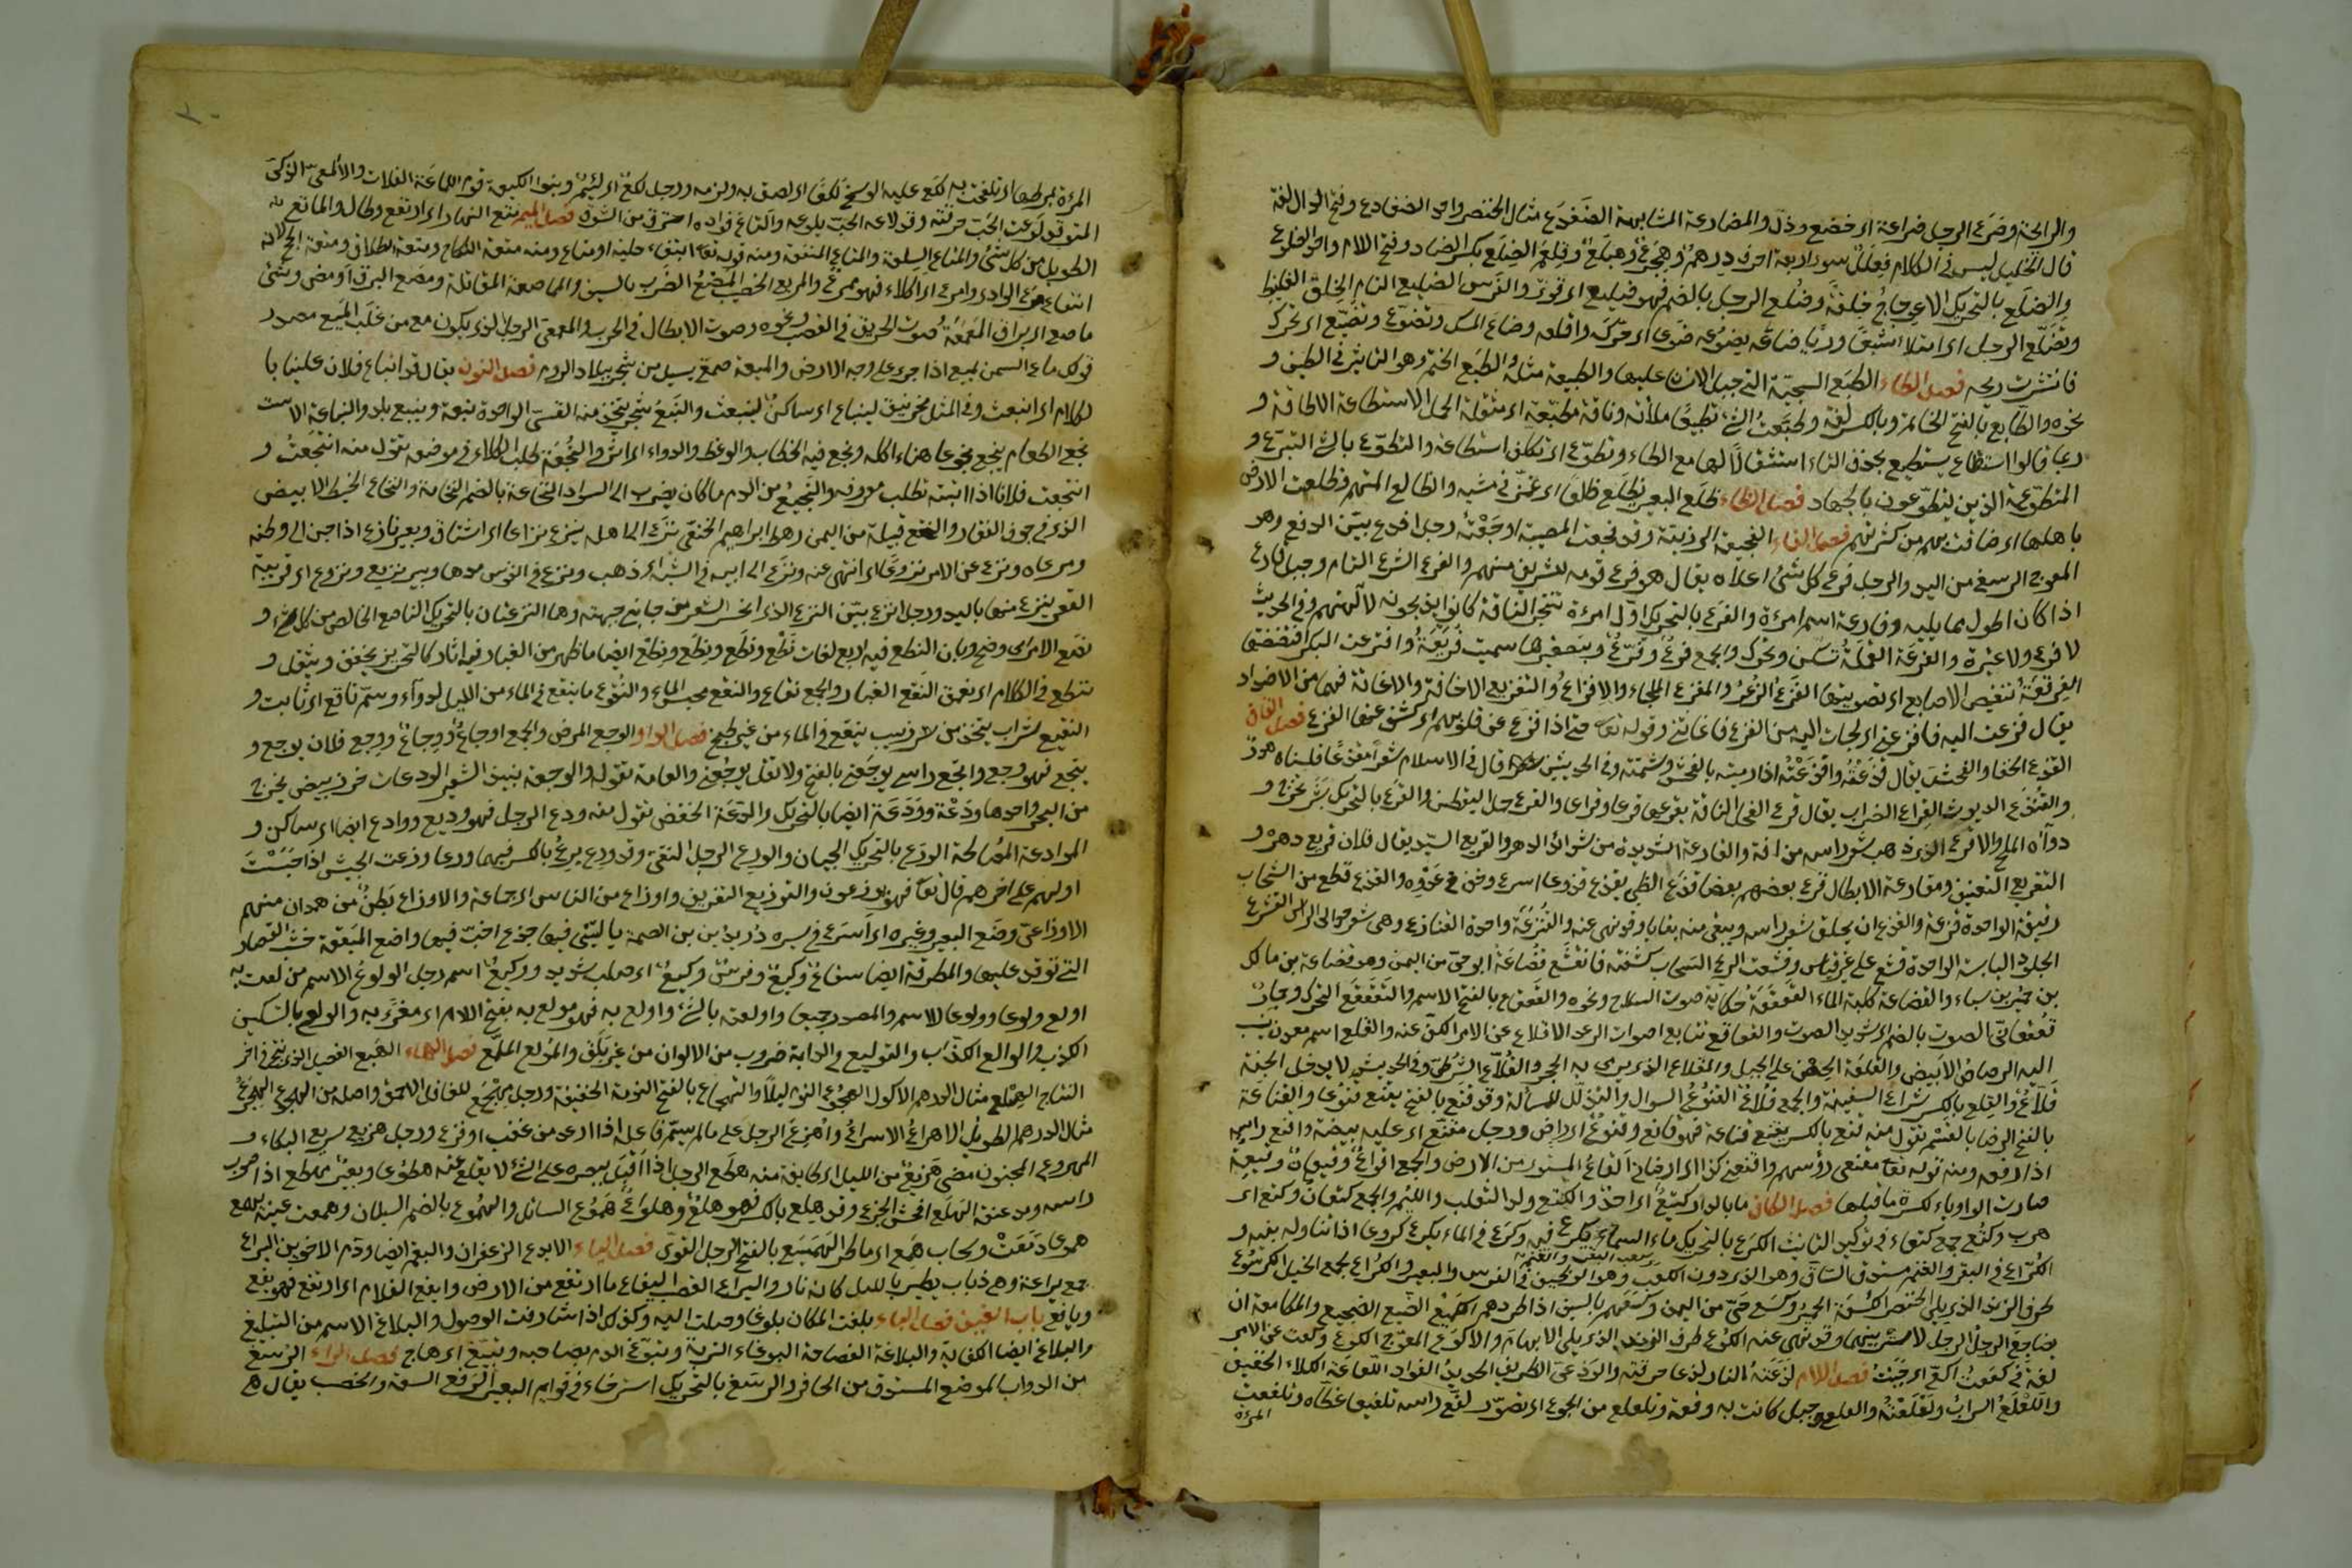 والرابحة وضرع الرجل ضراعة اى خضع وذل والمضارعة المشابهة الضفدع مثال الخنصر واحد الضفادع وفتح الدال لغة
قال الخليل ليس فى الكلام فعلل سوى اربعة احرف درهم وهجرع وهبلع وقلعم الضلع بكسر الضاد وفتح اللام واحد الضلوع
والضلع بالتحريك الاعوجاج خلقة وضلع الرجل بالضم فهو ضليع اى قوى والفرس الضليع التام الخلق الغليظ
وتضلع الرجل اى امتلا شبعا وريا ضاعه يضوعه ضوعا اى حركه واقلقه وضاع المسك وتضوع وتضيع اى تحرك
فانتشرت ريحه فصل الطاء الطبع السجية التى جبل الانسان عليها والطبيعة مثله والطبع الختم وهو التاثير فى الطين و
نحوه والطابع بالفتح الخاتم وبالكسر لغة وطبعت الشئ تطبيعا ملأته وناقة مطبعة اى مثقلة الحمل الاستطاعة الاطاقة و
ربما قالوا اسطاع يسطيع بحذف التاء استثقالا لها مع الطاء وتطوع اى تكلف استطاعة والتطوع بالشئ التبرع و
المطوعة الذين يتطوعون بالجهاد فصل الظاء ظلع البعير يظلع ظلعا اى غمز فى مشيه والظالع المتهم وظلعت الارض
باهلها اى ضاقت بهم من كثرتهم فصل الفاء الفجيعة الرزية وقد فجعت المصيبة اوجعته رجل افدع بين الفدع وهو
المعوج الرسغ من اليد والرجل فرع كل شئ اعلاه يقال هو فرع قومه للشريف منهم والفرع الشعر التام وجبل فارع
اذا كان اطول مما يليه وفارعة اسم امرءة والفرع بالتحريك اول تنتج الناقة كانوا يذبحونه لآلهتهم وفى الحديث
لا فرع ولا عتيرة والفرعة القملة تسكن وتحرك والجمع فرع وفرع وبتصغيرها سميت فريعة وافترعت البكر افتضضتها
الفرقعة تنقيض الاصابع الفزع الذعر والمفزع الملجاء والافزاع والتفزيع الاخافة والاغاثة فهما من الاضداد
يقال فزعت اليه فافزعنى اى لجات اليه من الفزع فاغاثنى وقوله تعا حتى اذا فزع عن قلوبهم اى كشف عنها الفزع فصل القاف
القذع الخنا والفحش يقال قذعته واقذعته اذا رميته بالفحش وشتمته وفى الحديث من قال فى الاسلام شعرا مقذعا فلسانه هدر
والقنذع الديوث القراع الضراب يقال قرع الفحل الناقة يقرعها قرعا وقراعا والقرع حمل اليقطين والقرع بالتحريك بثر يخرج و
دواه الملح والاقرع الذى ذهب شعر راسه من افة والقارعة الشديدة من شدائد الدهر والقريع السيد يقال فلان قريع دهره و
التقريع التعنيف ومقارعة الابطال قرع بعضهم بعضا قزع الظبى يقزع قزوعا اسرع وخف فى عدوه والقزع قطع من السحاب
رقيقة الواحدة قزعة والقزع ان يحلق شعر راسه ويبقى منه بقايا وقد نهى عنه والقنزعة واحدة القنازع وهى شعر حوالى الراس القشع
الجلود اليابسة الواحدة قشع على غير قياس وقشعت الريح السحاب كشفته فانقشع قضاعة ابو حى من اليمن وهو قضاعة بن مالك
بن حمير بن سباء والقضاعة كلبة الماء القعقعة حكاية صوت السلاح ونحوه والقعقاع بالفتح الاسم والتقعقع التحرك
قعقعانى الصوت بالضم اى شديد الصوت والقعاقع تتابع اصوات الرعد الاقلاع عن الامر الكف عنه والقلع اسم معدن ينسب
اليه الرصاص الابيض والقلعة الحصن على الجبل والقلاع الذى يرمى به الحجر والقلاع الشرطى وفى الحديث لا يدخل الجنة
قلاع والقلع بالكسر شراع السفينة والجمع قلاع القنوع السوال والتذلل للمسألة وقد قنع بالفتح يقنع قنوعا والقناعة
بالفتح الرضا بالقسم تقول منه قنع بالكسر يقنع قناعة فهو قانع وقنوع اى راض ورجل مقنع اى عليه بيضة واقنع راسه
اذا رفعه ومنه قوله تعا مقنعى رؤسهم واقنعنى كذا اى ارضانى القاع المستوى من الارض والجمع اقواع وقيعان وقيعة
صارت الواو ياء لكسرة ما قبلها فصل الكاف ما بالدار كتيع اى احد والكتع ولد الثعلب واللئيم والجمع كتعان وكتع اى
هرب وكتع جمع كتعاء فى توكيد التانيث الكرع بالتحريك ماء السماء يكرع فيه وكرع فى الماء يكرع كروعا اذا تناوله بفيه و
الكراع فى البقر والغنم مستدق الساق وهو الذى دون الكعب وهو الوظيف فى الفرس والبعير والكراع يجمع الخيل الكرسوع
طرف الزند الذى يلى الخنصر الكسعة الحمير وكسع حى من اليمن وكسعهم بالسيف اذا طردهم الكميع الضجيع والمكامعة ان
يضاجع الرجل الرجل لا ستر بينهما وقد نهى عنه الكوع طرف الزند الذى يلى الابهام والاكوع المعوج الكوع وكعت عن الامر
لغة فى كععت اكع اى جبنت فصل اللام لذعته النار لذعا احرقته واللوذعى الظريف الحديد الفواد اللعاعة الكلاء الخفيف
واللعلع السراب ولعلعته ولعلع جبل كانت به وقعة وتلعلع من الجوع اى تضور لفع راسه تلفيعا غطاه وتلفعت
المرءة
المرءة بمرطها اى تلفحت به لكع عليه الوسخ لكعا اى لصق به ولزمه ورجل لكع اى لئيم وبنو اللكيعة قوم اللماعة الفلاة والالمعى الذكى
المتوقد لوعة الحب حرقته وقد لاعه الحب يلوعه والتاع فواده احترق من الشوق فصل الميم متع النهار اى ارتفع وطال والماتع
الطويل من كل شئ والمتاع السلعة والمتاع المنفعة ومنه قوله تعا ابتغاء حلية او متاع ومنه متعة النكاح ومتعة الطلاق ومتعة الحج لانه
انتفاع مرع الوادى وامرع اى اكلاء فهو ممرع والمريع الخصيب المصع الضرب بالسيف والمماصعة المقاتلة ومصع البرق اومض وشئ
ماصع اى براق المعمعة صوت الحريق فى القصب ونحوه وصوت الابطال فى الحرب والمعمعى الرجل الذى يكون مع من غلب الميع مصدر
قولك ماع السمن يميع اذا جرى على وجه الارض والميعة صمغ يسيل من شجر ببلاد الروم فصل النون يقال قد انباع فلان علينا با
لكلام اى انبعث وفى المثل مخرنبق لينباع اى ساكن لينبعث والنبع شجر يتخذ منه القسى الواحدة نبعة وينبع بلد والنباعة الاست
نجع الطعام ينجع نجوعا هناء اكله ونجع فيه الخطاب والوعظ والدواء اى اثر والنجعة طلب الكلاء فى موضعه تقول منه انتجعت و
انتجعت فلانا اذا اتيته تطلب معروفه والنجيع من الدم ما كان يضرب الى السواد النخاعة بالضم النخامة والنخاع الخيط الابيض
الذى فى جوف الفقار والنخع قبيلة من اليمن رهط ابراهيم النخعى نزع الى اهله ينزع نزاعا اى اشتاق وبعير نازع اذا حن الى وطنه
ومرعاه ونزع عن الامر نزوعا اى انتهى عنه ونزع الى ابيه فى الشبه اى ذهب ونزع فى القوس مدها وبير نزيع ونزوع اى قريبة
القعر ينزع منها باليد ورجل انزع بين النزع الذى انحسر الشعر عن جانبى جبهته وهما النزعتان بالتحريك الناصع الخالص من كل شئ و
نصع الامر وضح وبان النطع فيه اربع لغات نطع ونطع ونطع ونطع ايضا ما ظهر من الغار فيه اثار كالتحزيز يخفف ويثقل و
تنطع فى الكلام اى تعمق النقع الغبار والجمع نقاع والنقع محبس الماء والنقوع ما ينقع فى الماء من الليل لدواء وسم ناقع اى ثابت و
النقيع شراب يتخذ من زبيب ينقع فى الماء من غير طبخ فصل الواو الوجع المرض والجمع اوجاع ووجاع ووجع فلان يوجع و
ييجع فهو وجع واتجع راسى يوجعنى بالفتح ولا تقل يوجعنى والعامة تقوله والوجعة نبيذ الشعير الودعات خرز بيض يخرج
من البحر واحدها ودعة وودعة ايضا بالتحريك والدعة الخفض تقول منه ودع الرجل فهو وديع ووادع ايضا اى ساكن و
الموادعة المصالحة الورع بالتحريك الجبان والورع الرجل التقى وقد ورع يرع بالكسر فيهما ورعا وزعت الجيش اذا حبست
اولهم على اخرهم قال تعا فهم يوزعون والتوزيع التفريق واوزاع من الناس اى جماعة والاوزاع بطن من همدان منهم
الاوزاعى وضع البعير وغيره اى اسرع فى سيره دريد بن الصمة يا ليتنى فيها جذع اخب فيها واضع الميقعة خشبة القصار
التى توقع عليها والمطرقة ايضا سقاء وكيع وفرس وكيع اى صلب شديد ووكيع اسم رجل الولوع الاسم من لعت به
اولع ولوعا وولوعا للاسم والمصدر جميعا واولعته بالشئ واولع به فهو مولع به بفتح اللام اى مغرى به والولع بالتسكين
الكذب والوالع الكذاب والتوليع فى الدابة ضروب من الالوان من غير بلق والمولع الملمع فصل الهاء الهبع الفصيل الذى ينتج فى اخر
النتاج الهبلع مثال الدرهم الاكول الهجوع النوم ليلا والتهجاع بالفتح النومة الخفيفة ورجل مهجع للغافل الاحمق واصله من الهجوع الهجرع
مثال الدرهم الطويل الاهراع الاسراع واهرع الرجل على ما لم يسم فاعله اذا ارعد من غضب او فزع ورجل هريع سريع البكاء و
المهروع المجنون مضى هزيع من الليل اى طايفة منه هطع الرجل اذا اقبل ببصره على الشئ لا يقلع عنه هطوعا وبعير مهطع اذا صوب
راسه ومد عنقه الهلع افحش الجزع وقد هلع بالكسر فهو هلع وهلوع هموع السائل والهموع بالضم السيلان وهمعت عينه تهمع
هموعا دمعت وسحاب همع اى ماطر الهميسع بالفتح الرجل القوى فصل الياء الايدع الزعفران والبقم ايضا ودم الاخوين اليراع
جمع يراعة وهى ذباب يطير بالليل كانه نار واليراع القصب اليفاع ما ارتفع من الارض وايفع الغلام اى ارتفع فهو يفع
ويافع باب الغين فصل الباء بلغت المكان بلوغا وصلت اليه وكذلك اذا شارفت الوصول والبلاغ الاسم من التبليغ
والبلاغ ايضا الكفاية والبلاغة الفصاحة البوغاء التربة وتبوغ الدم بصاحبه وتبيغ اى هاج فصل الراء الرسغ
من الدواب الموضع المستدق من الحافر والرسغ بالتحريك استرخاء فى قوايم البعير الرفغ السعة والخصب يقال هى